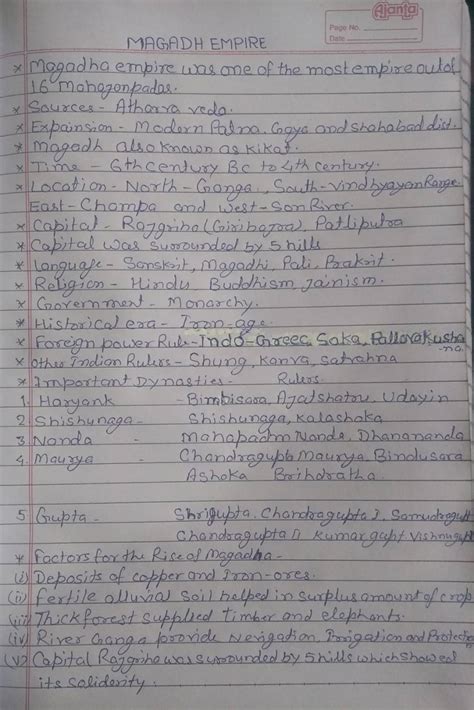 Ajanta
Page No.
Date
MAGADH EMPIRE
* Magadha empire was one of the most empire out of
16 Mahajanpadas.
* Sources - Atharva veda.
* Expainsion - Modern Patna, Gaya and Shahabad dist.
* Magadh also known as Kikat.
* Time - 6th century Bc to 4th century.
* Location - North - Ganga, South - Vindhyayan Range
East - Champa and West - Son River.
* Capital - Rajgriha (Giribajra), Patliputra
* Capital was surrounded by 5 hills
* Language - Sanskrit, Magadhi, Pali, Prakrit.
* Religion - Hindu, Buddhism, Jainism.
* Government - Monarchy.
* Historical era - Iron-age.
* Foreign power Rule - Indo-Greec, Saka, Pallova, Kusha
-na.
* Other Indian Rulers - Shung, Kanva, Satvahna
* Important Dynasties - Rulers
1. Haryank - Bimbisara, Ajatshatru, Udayin
2 Shishunaga - Shishunaga, Kalashoka
3. Nanda - Mahapadm Nanda, Dhanananda
4. Maurya - Chandragupta Maurya, Bindusara
Ashoka Brihdratha
5 Gupta - Shrigupta, Chandragupta I, Samudragupt
Chandragupta II Kumargupt Vishnugupt
* Factors for the Rise of Magadha -
(i) Deposits of copper and Iron-ores.
(ii) Fertile alluvial soil helped in surplus amount of crop
(iii) Thick forest supplied timber and elephants.
(iv) River Ganga provide Nevigation, Irrigation and Protection
(v) Capital Rajgriha was surrounded by 5 hills which showed
its soliderity.